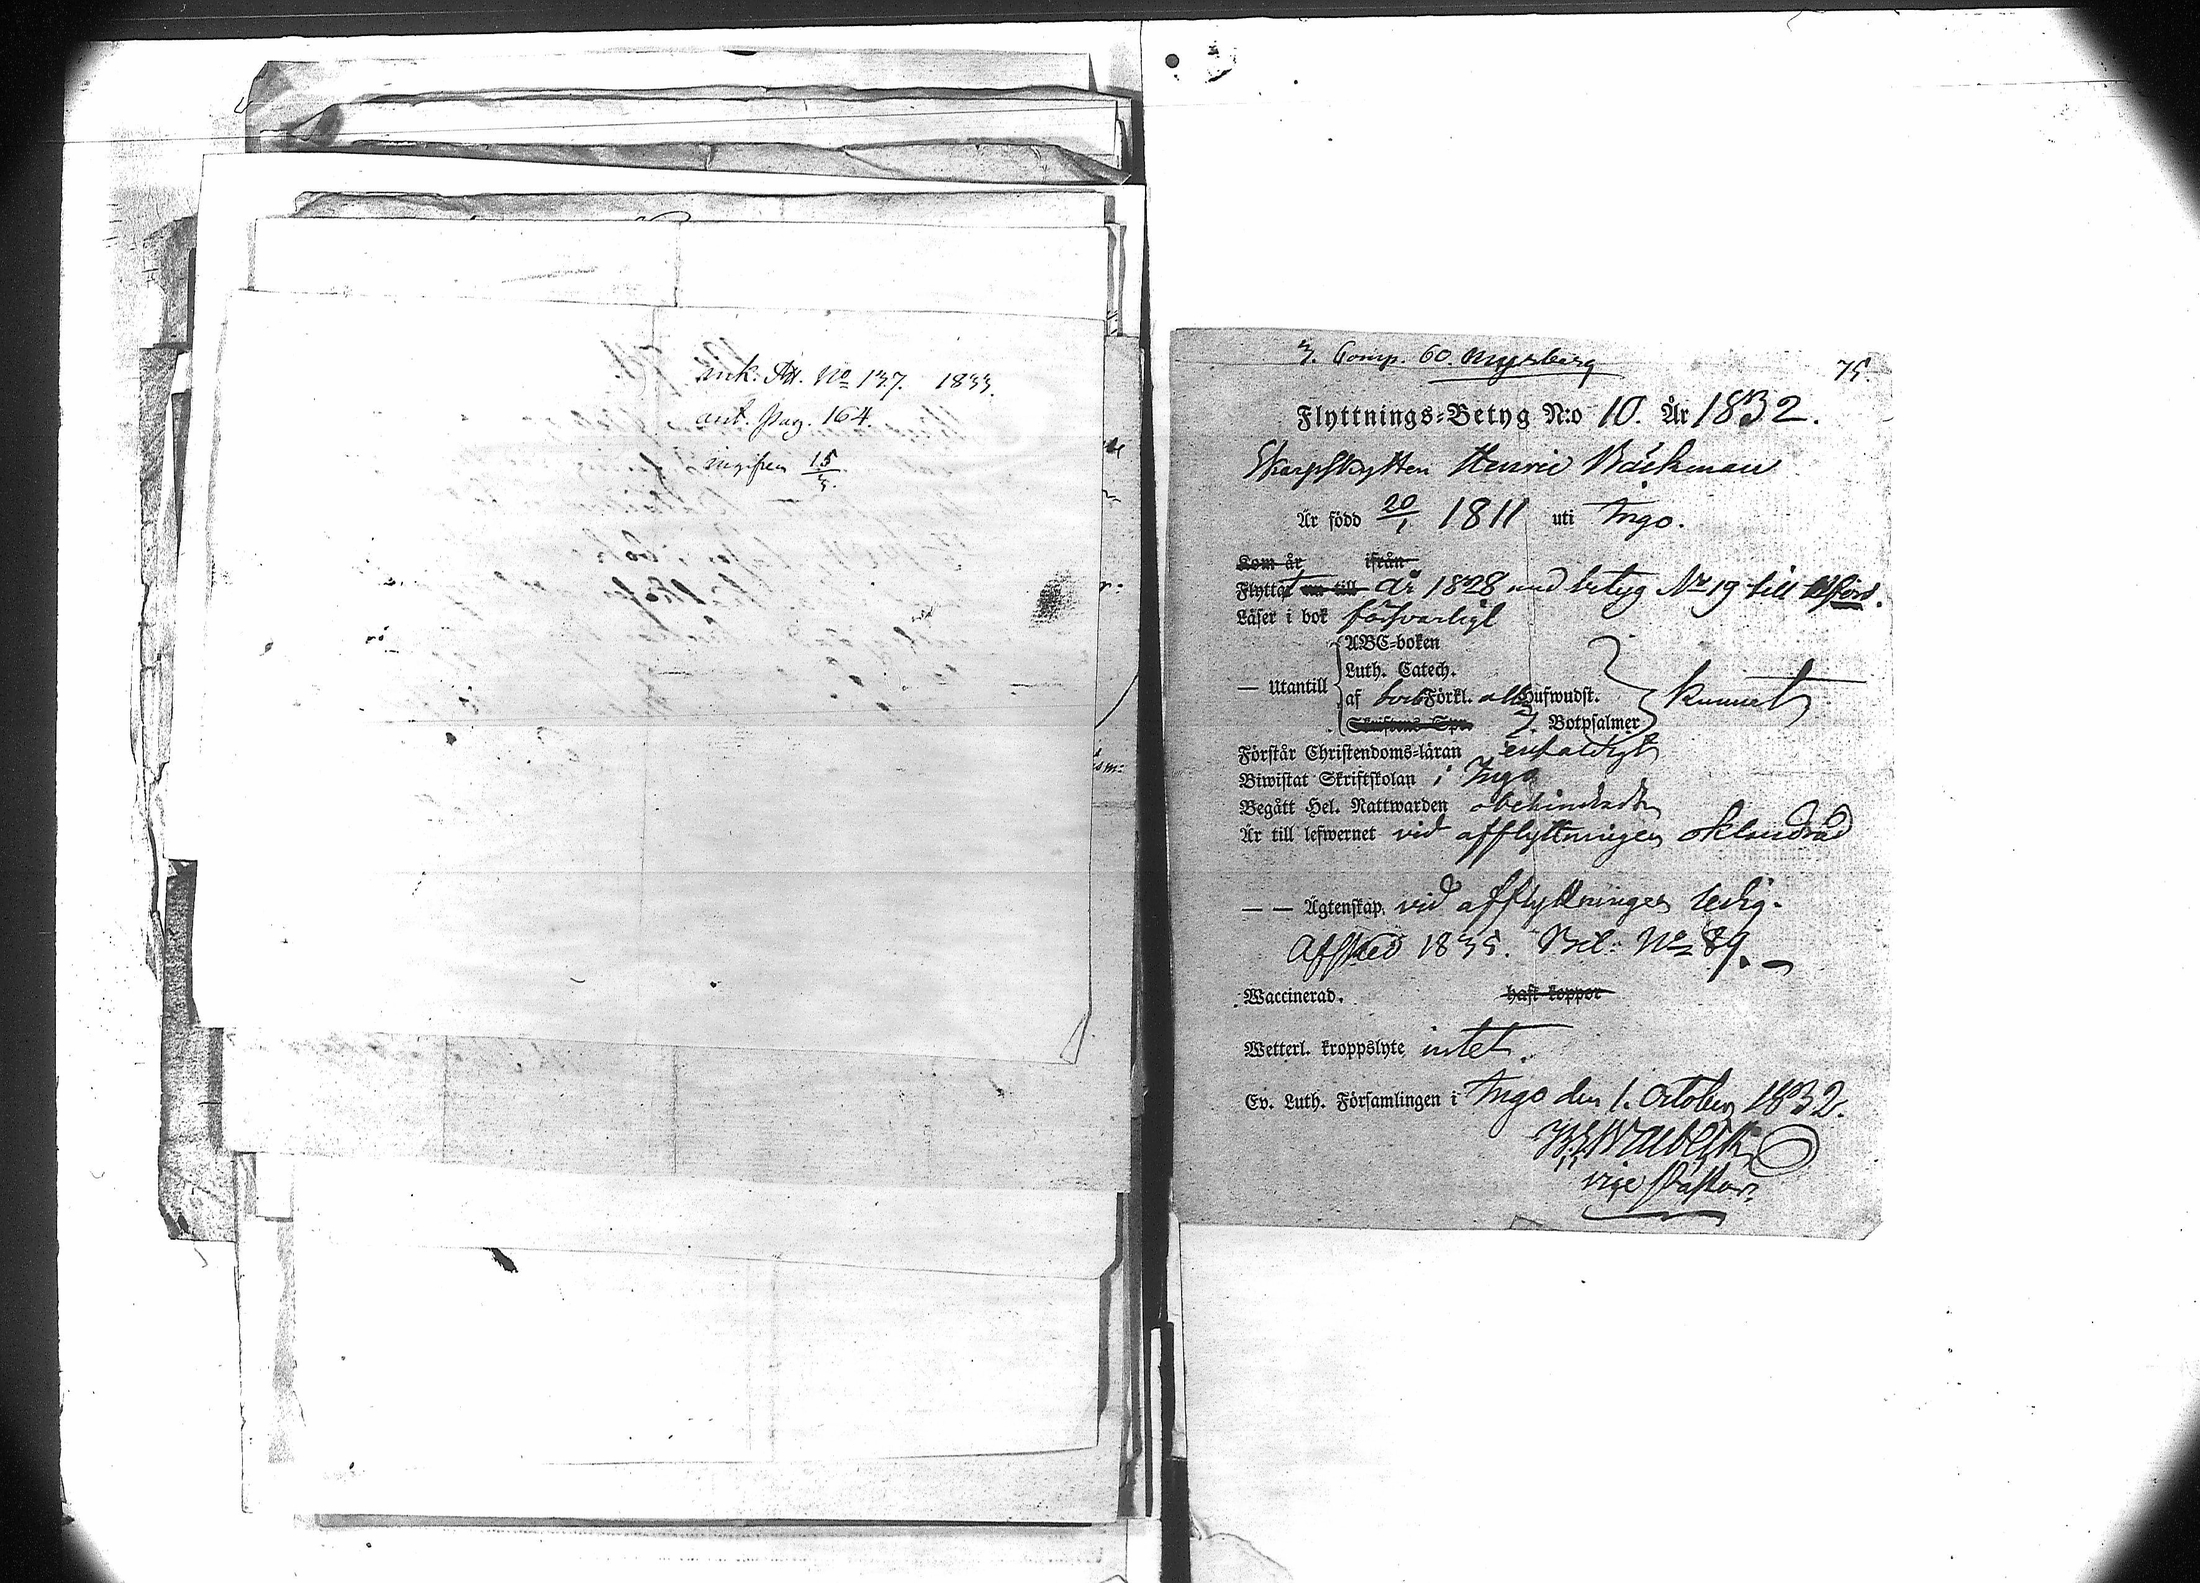 ank. Att. No 137. 1833.
ant. pag. 164.
ingifven 15/3.
3. Comp. 60. Myrsberg
75.
Flyttnings-Betyg N:o 10. År 1832.
Skarpskytten Henric Bäckman
Är född 20/1 1811 uti Ingo.
Kom år ifrån
Flyttat nu till år 1828 med betyg No 19 till
Läser i bok försvarligt
ABC-boken
Luth. Catech.
— Utantill af Förkl. alla Hufwudst. kunnat
7. Botpsalmer
Förstår Christendoms-läran enfaldigt
Biwistat Skriftskolan i Ingo
Begått Hel. Nattwarden obehindradt
Är till lefwernet vid afflyttningen oklandrad
— — Ägtenskap. vid afflyttningen ledig.
Afsked 1835. Bil. No 89.
Waccinerad. haft koppor
Wetterl. kroppslyte intet.
Ev. Luth. Församlingen i Ingo den 1. October 1832.
vice Pastor.